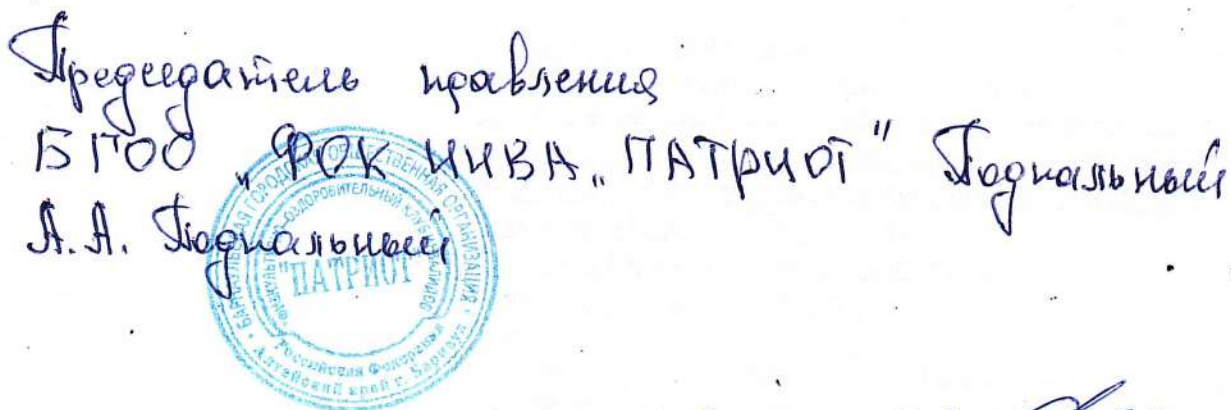 Председатель правления
БГОО „ФОК ИНВА „ПАТРИОТ" Подкальный
А.А. Подкальный
БАРНАУЛЬСКАЯ ГОРОДСКАЯ ОБЩЕСТВЕННАЯ ОРГАНИЗАЦИЯ
ФИЗКУЛЬТУРНО-ОЗДОРОВИТЕЛЬНЫЙ КЛУБ ИНВАЛИДОВ
"ПАТРИОТ"
Российская Федерация
Алтайский край г. Барнаул